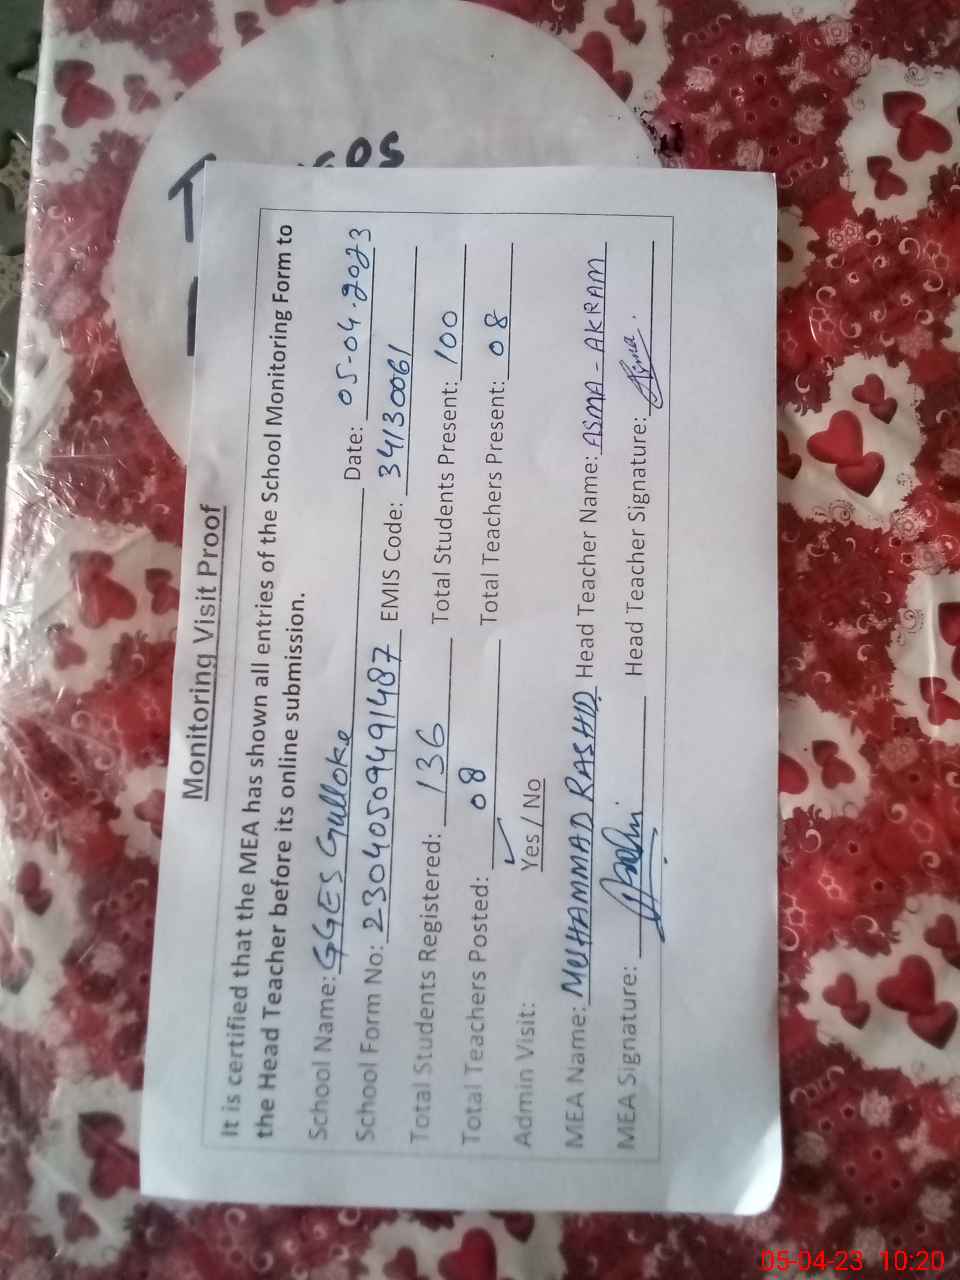 Monitoring Visit Proof
It is certified that the MEA has shown all entries of the School Monitoring Form to
the Head Teacher before its online submission.
School Name: GGES Gulloke Date: 05-04-2023
School Form No: 23040509491487 EMIS Code: 34130061
Total Students Registered: 136 Total Students Present: 100
Total Teachers Posted: 08 Total Teachers Present: 08
Admin Visit: Yes / No
MEA Name: MUHAMMAD RASHID Head Teacher Name: ASMA - AKRAM
MEA Signature: Head Teacher Signature: Asma.
05-04-23 10:20